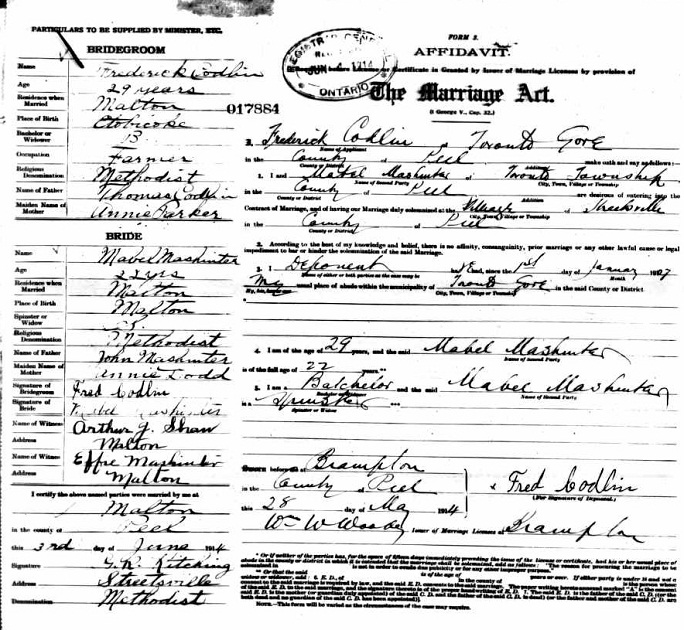 PARTICULARS TO BE SUPPLIED BY MINISTER, ETC.
BRIDEGROOM
Name Frederick Codlin
Age 29 years
Residence when Married Malton
Place of Birth Etobicoke
Bachelor or Widower B
Occupation Farmer
Religious Denomination Methodist
Name of Father Thomas Codlin
Maiden Name of Mother Annie Parker
BRIDE
Name Mabel Mashinter
Age 22 yrs
Residence when Married Malton
Place of Birth Malton
Spinster or Widow
Religious Denomination Methodist
Name of Father John Mashinter
Maiden Name of Mother Annie Dodd
Signature of Bridegroom Fred Codlin
Signature of Bride Mabel Mashinter
Name of Witness Arthur J. Shaw
Address Malton
Name of Witness Effie Mashinter
Address Malton
I certify the above named parties were married by me at
Malton
in the county of Peel
this 3rd day of June 1914
Signature G. R. Kitching
Address Streetsville
Religious Denomination Methodist
REGISTRAR GENERAL
JUN 4 1914
ONTARIO
017884
FORM 3.
AFFIDAVIT
before License or Certificate is Granted by Issuer of Marriage Licenses by provision of
The Marriage Act.
(1 George V., Cap. 32.)
I, Frederick Codlin of Toronto Gore
Name of Applicant
in the County of Peel make oath and say as follows:
County or District
1. I and Mabel Mashinter of Toronto Township
Name of Second Party City, Town, Village or Township
in the County of Peel are desirous of entering into the
County or District
Contract of Marriage, and of having our Marriage duly solemnized at the Village of Streetsville
City, Town, Village or Township
in the County of Peel
County or District
2. According to the best of my knowledge and belief, there is no affinity, consanguinity, prior marriage or any other lawful cause or legal
impediment to bar or hinder the solemnization of the said Marriage.
3. I Deponent since the 1st day of January
Name of either or both parties as the case may be Month
My usual place of abode within the municipality of Toronto Gore in the said County or District
City, Town, Village or Township
4. I am of the age of 29 years, and the said Mabel Mashinter
Name of Second Party
is of the full age of 22 years
5. I am a Batchelor and the said Mabel Mashinter
Bachelor or Widower Name of Second Party
is a Spinster
Spinster or Widow
Sworn before me at Brampton
in the County of Peel
this 28 day of May 1914
Fred Codlin
(For Signature of Deponent.)
Wm W Woods Issuer of Marriage Licenses at Brampton
NOTE.—This form will be varied as the circumstances of the case may require.